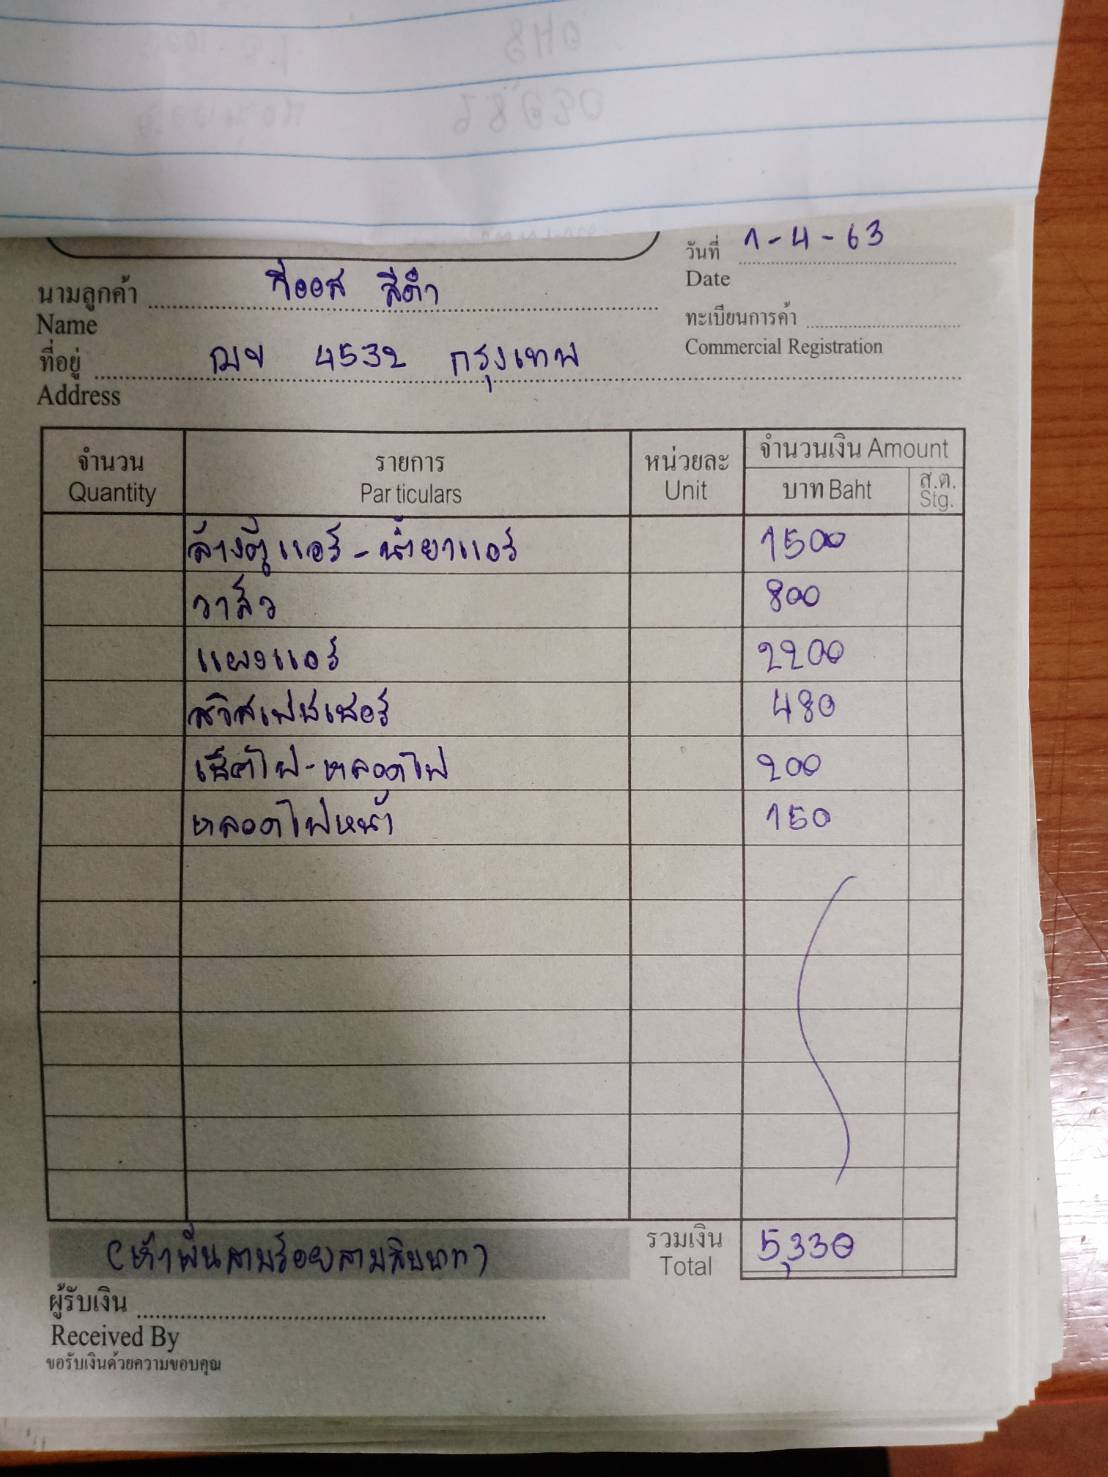 วันที่ 1-4-63
Date
นามลูกค้า วีออส สีดำ
Name
ทะเบียนการค้า
Commercial Registration
ที่อยู่ ฌข 4532 กรุงเทพ
Address
จำนวน รายการ หน่วยละ จำนวนเงิน Amount
Quantity Particulars Unit บาท Baht ส.ต. Stg.
ล้างตู้แอร์-น้ำยาแอร์ 1500
วาล์ว 800
แผงแอร์ 2200
สวิสเฟชเชอร์ 480
เช็คไฟ-หลอดไฟ 200
หลอดไฟหน้า 150
(ห้าพันสามร้อยสามสิบบาท) รวมเงิน 5,330
Total
ผู้รับเงิน
Received By
ขอรับเงินด้วยความขอบคุณ